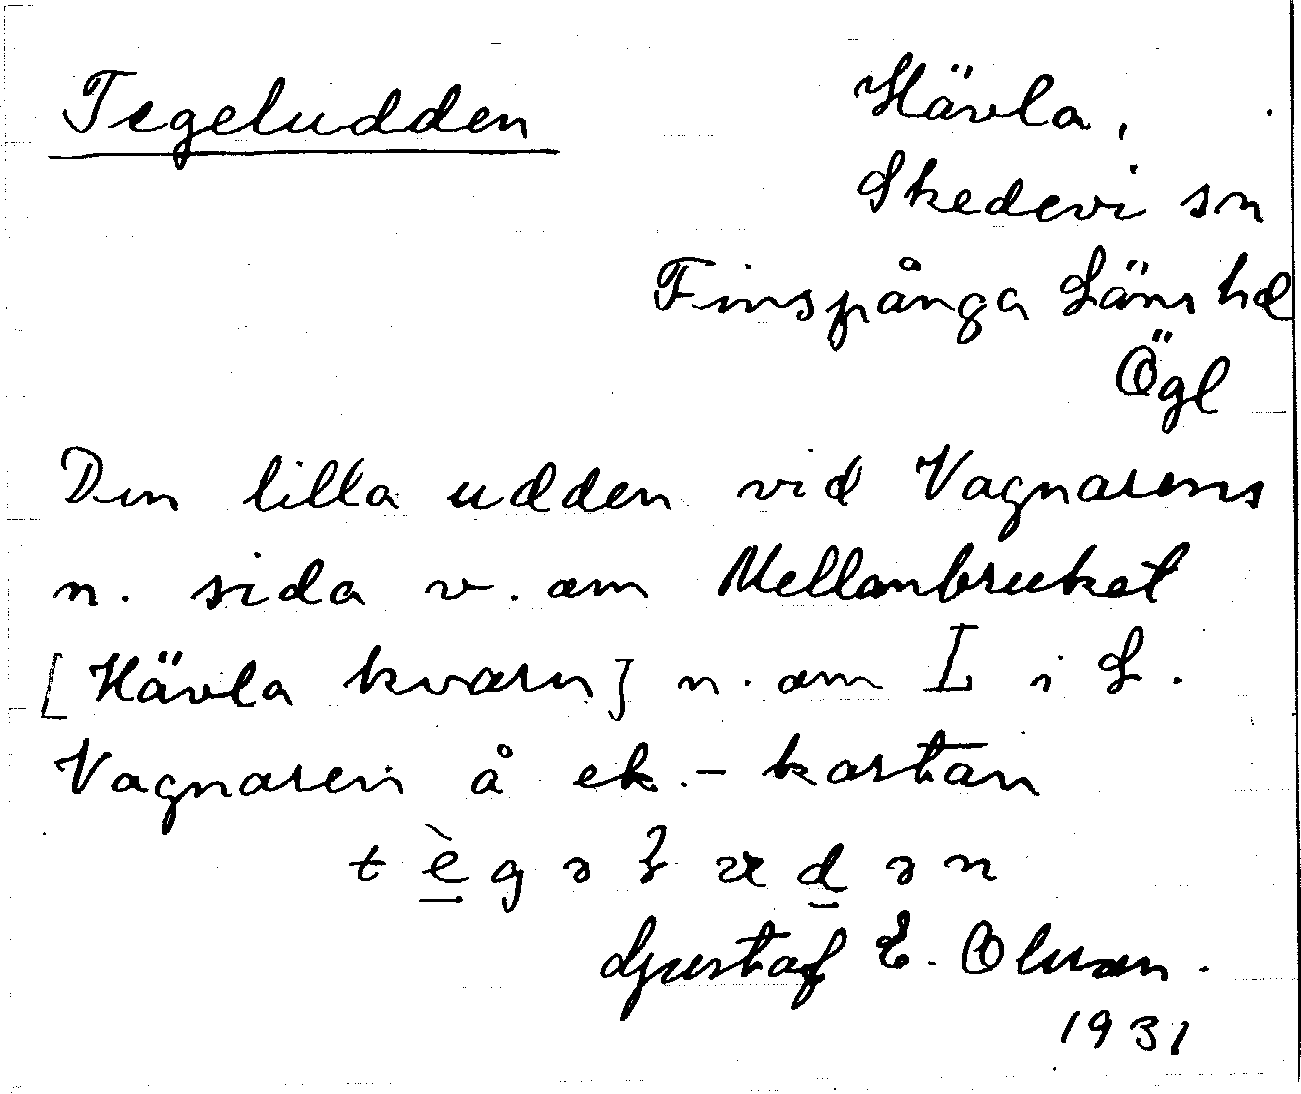 Tegeludden
Hävla,
Skedevi sn
Finspånga Läns hd
Ögl
Den lilla udden vid Vagnarens
n. sida v. om Mellanbruket
[Hävla kvarn] n. om L i L.
Vagnaren å ek.-kartan
tègəɫʉdən
Gustaf E. Olsson.
1931